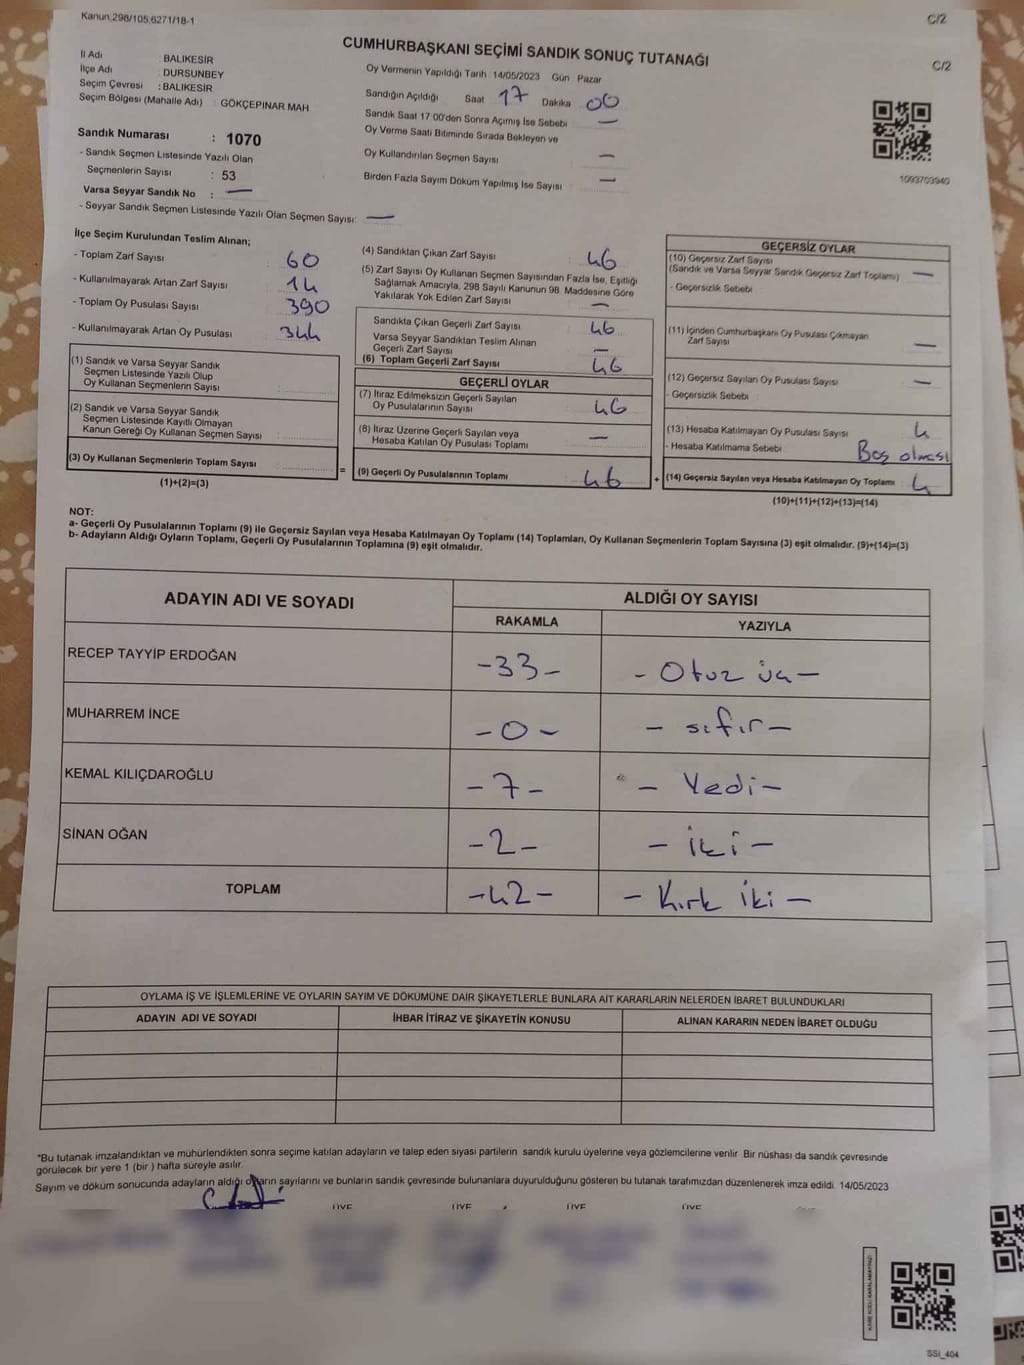 Kanun:298/105,6271/18-1
C/2
CUMHURBAŞKANI SEÇİMİ SANDIK SONUÇ TUTANAĞI
C/2
İl Adı : BALIKESİR
İlçe Adı : DURSUNBEY
Seçim Çevresi : BALIKESİR
Seçim Bölgesi (Mahalle Adı) : GÖKÇEPINAR MAH
Sandık Numarası : 1070
- Sandık Seçmen Listesinde Yazılı Olan
Seçmenlerin Sayısı : 53
Varsa Seyyar Sandık No : —
- Seyyar Sandık Seçmen Listesinde Yazılı Olan Seçmen Sayısı: —
Oy Vermenin Yapıldığı Tarih :14/05/2023 Gün : Pazar
Sandığın Açıldığı Saat 17 Dakika 00
Sandık Saat 17:00'den Sonra Açımış İse Sebebi : —
Oy Verme Saati Bitiminde Sırada Bekleyen ve
Oy Kullandırılan Seçmen Sayısı : —
Birden Fazla Sayım Döküm Yapılmış İse Sayısı : —
1093703940
İlçe Seçim Kurulundan Teslim Alınan;
- Toplam Zarf Sayısı : 60
- Kullanılmayarak Artan Zarf Sayısı : 14
- Toplam Oy Pusulası Sayısı : 390
- Kullanılmayarak Artan Oy Pusulası : 344
(1) Sandık ve Varsa Seyyar Sandık
Seçmen Listesinde Yazılı Olup
Oy Kullanan Seçmenlerin Sayısı :
(2) Sandık ve Varsa Seyyar Sandık
Seçmen Listesinde Kayıtlı Olmayan
Kanun Gereği Oy Kullanan Seçmen Sayısı :
(3) Oy Kullanan Seçmenlerin Toplam Sayısı :
(1)+(2)=(3)
=
(4) Sandıktan Çıkan Zarf Sayısı : 46
(5) Zarf Sayısı Oy Kullanan Seçmen Sayısından Fazla İse, Eşitliği
Sağlamak Amacıyla, 298 Sayılı Kanunun 98. Maddesine Göre
Yakılarak Yok Edilen Zarf Sayısı : —
Sandıkta Çıkan Geçerli Zarf Sayısı : 46
Varsa Seyyar Sandıktan Teslim Alınan
Geçerli Zarf Sayısı : —
(6) Toplam Geçerli Zarf Sayısı : 46
GEÇERLİ OYLAR
(7) İtiraz Edilmeksizin Geçerli Sayılan
Oy Pusulalarının Sayısı : 46
(8) İtiraz Üzerine Geçerli Sayılan veya
Hesaba Katılan Oy Pusulası Toplamı : —
(9) Geçerli Oy Pusulalarının Toplamı : 46
+
GEÇERSİZ OYLAR
(10) Geçersiz Zarf Sayısı
(Sandık ve Varsa Seyyar Sandık Geçersiz Zarf Toplamı) : —
- Geçersizlik Sebebi :
(11) İçinden Cumhurbaşkanı Oy Pusulası Çıkmayan
Zarf Sayısı : —
(12) Geçersiz Sayılan Oy Pusulası Sayısı : —
- Geçersizlik Sebebi :
(13) Hesaba Katılmayan Oy Pusulası Sayısı : 4
- Hesaba Katılmama Sebebi : Boş olması
(14) Geçersiz Sayılan veya Hesaba Katılmayan Oy Toplamı : 4
(10)+(11)+(12)+(13)=(14)
NOT:
a- Geçerli Oy Pusulalarının Toplamı (9) ile Geçersiz Sayılan veya Hesaba Katılmayan Oy Toplamı (14) Toplamları, Oy Kullanan Seçmenlerin Toplam Sayısına (3) eşit olmalıdır. (9)+(14)=(3)
b- Adayların Aldığı Oyların Toplamı, Geçerli Oy Pusulalarının Toplamına (9) eşit olmalıdır.
ADAYIN ADI VE SOYADI
ALDIĞI OY SAYISI
RAKAMLA YAZIYLA
RECEP TAYYİP ERDOĞAN -33- - Otuz üç -
MUHARREM İNCE -0- - sıfır -
KEMAL KILIÇDAROĞLU -7- - Yedi -
SİNAN OĞAN -2- - iki -
TOPLAM -42- - Kırk iki -
OYLAMA İŞ VE İŞLEMLERİNE VE OYLARIN SAYIM VE DÖKÜMÜNE DAİR ŞİKAYETLERLE BUNLARA AİT KARARLARIN NELERDEN İBARET BULUNDUKLARI
ADAYIN ADI VE SOYADI İHBAR İTİRAZ VE ŞİKAYETİN KONUSU ALINAN KARARIN NEDEN İBARET OLDUĞU
*Bu tutanak imzalandıktan ve mühürlendikten sonra seçime katılan adayların ve talep eden siyasi partilerin sandık kurulu üyelerine veya gözlemcilerine verilir. Bir nüshası da sandık çevresinde
görülecek bir yere 1 (bir ) hafta süreyle asılır.
Sayım ve döküm sonucunda adayların aldığı oyların sayılarını ve bunların sandık çevresinde bulunanlara duyurulduğunu gösteren bu tutanak tarafımızdan düzenlenerek imza edildi. 14/05/2023
ÜYE ÜYE ÜYE ÜYE
SSI_404